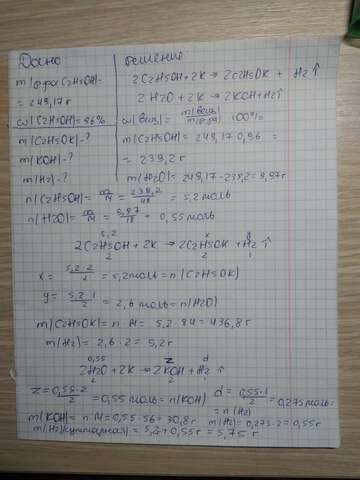 Дано
Решение
m(р-ра C2H5OH)=
= 249,17 г
ω(C2H5OH)=96%
m(C2H5OK)-?
m(KOH)-?
m(H2)-?
2C2H5OH+2K → 2C2H5OK + H2↑
2H2O+2K → 2KOH+H2↑
ω(вещ)= m(вещ)/m(р-ра) · 100%
m(C2H5OH)= 249,17·0,96 =
= 239,2 г
m(H2O)= 249,17-239,2=9,97г
n(C2H5OH)= m/M = 239,2/48 = 5,2 моль
n(H2O)= m/M = 9,97/18 = 0,55 моль
5,2 x y
2C2H5OH + 2K → 2C2H5OK + H2↑
2 2 1
x = 5,2·2/2 = 5,2моль = n(C2H5OK)
y = 5,2·1/2 = 2,6 моль= n(H2O)
m(C2H5OK)= n·M= 5,2·84= 436,8г
m(H2)= 2,6·2 = 5,2г
0,55 z d
2H2O+2K → 2KOH + H2↑
2 2 1
z= 0,55·2/2 = 0,55 моль= n(KOH) d = 0,55·1/2 = 0,275 моль=
= n(H2)
m(KOH)= n·M=0,55·56=30,8г m(H2)=0,275·2=0,55г
m(H2)(суммарная)= 5,2+0,55г= 5,75 г